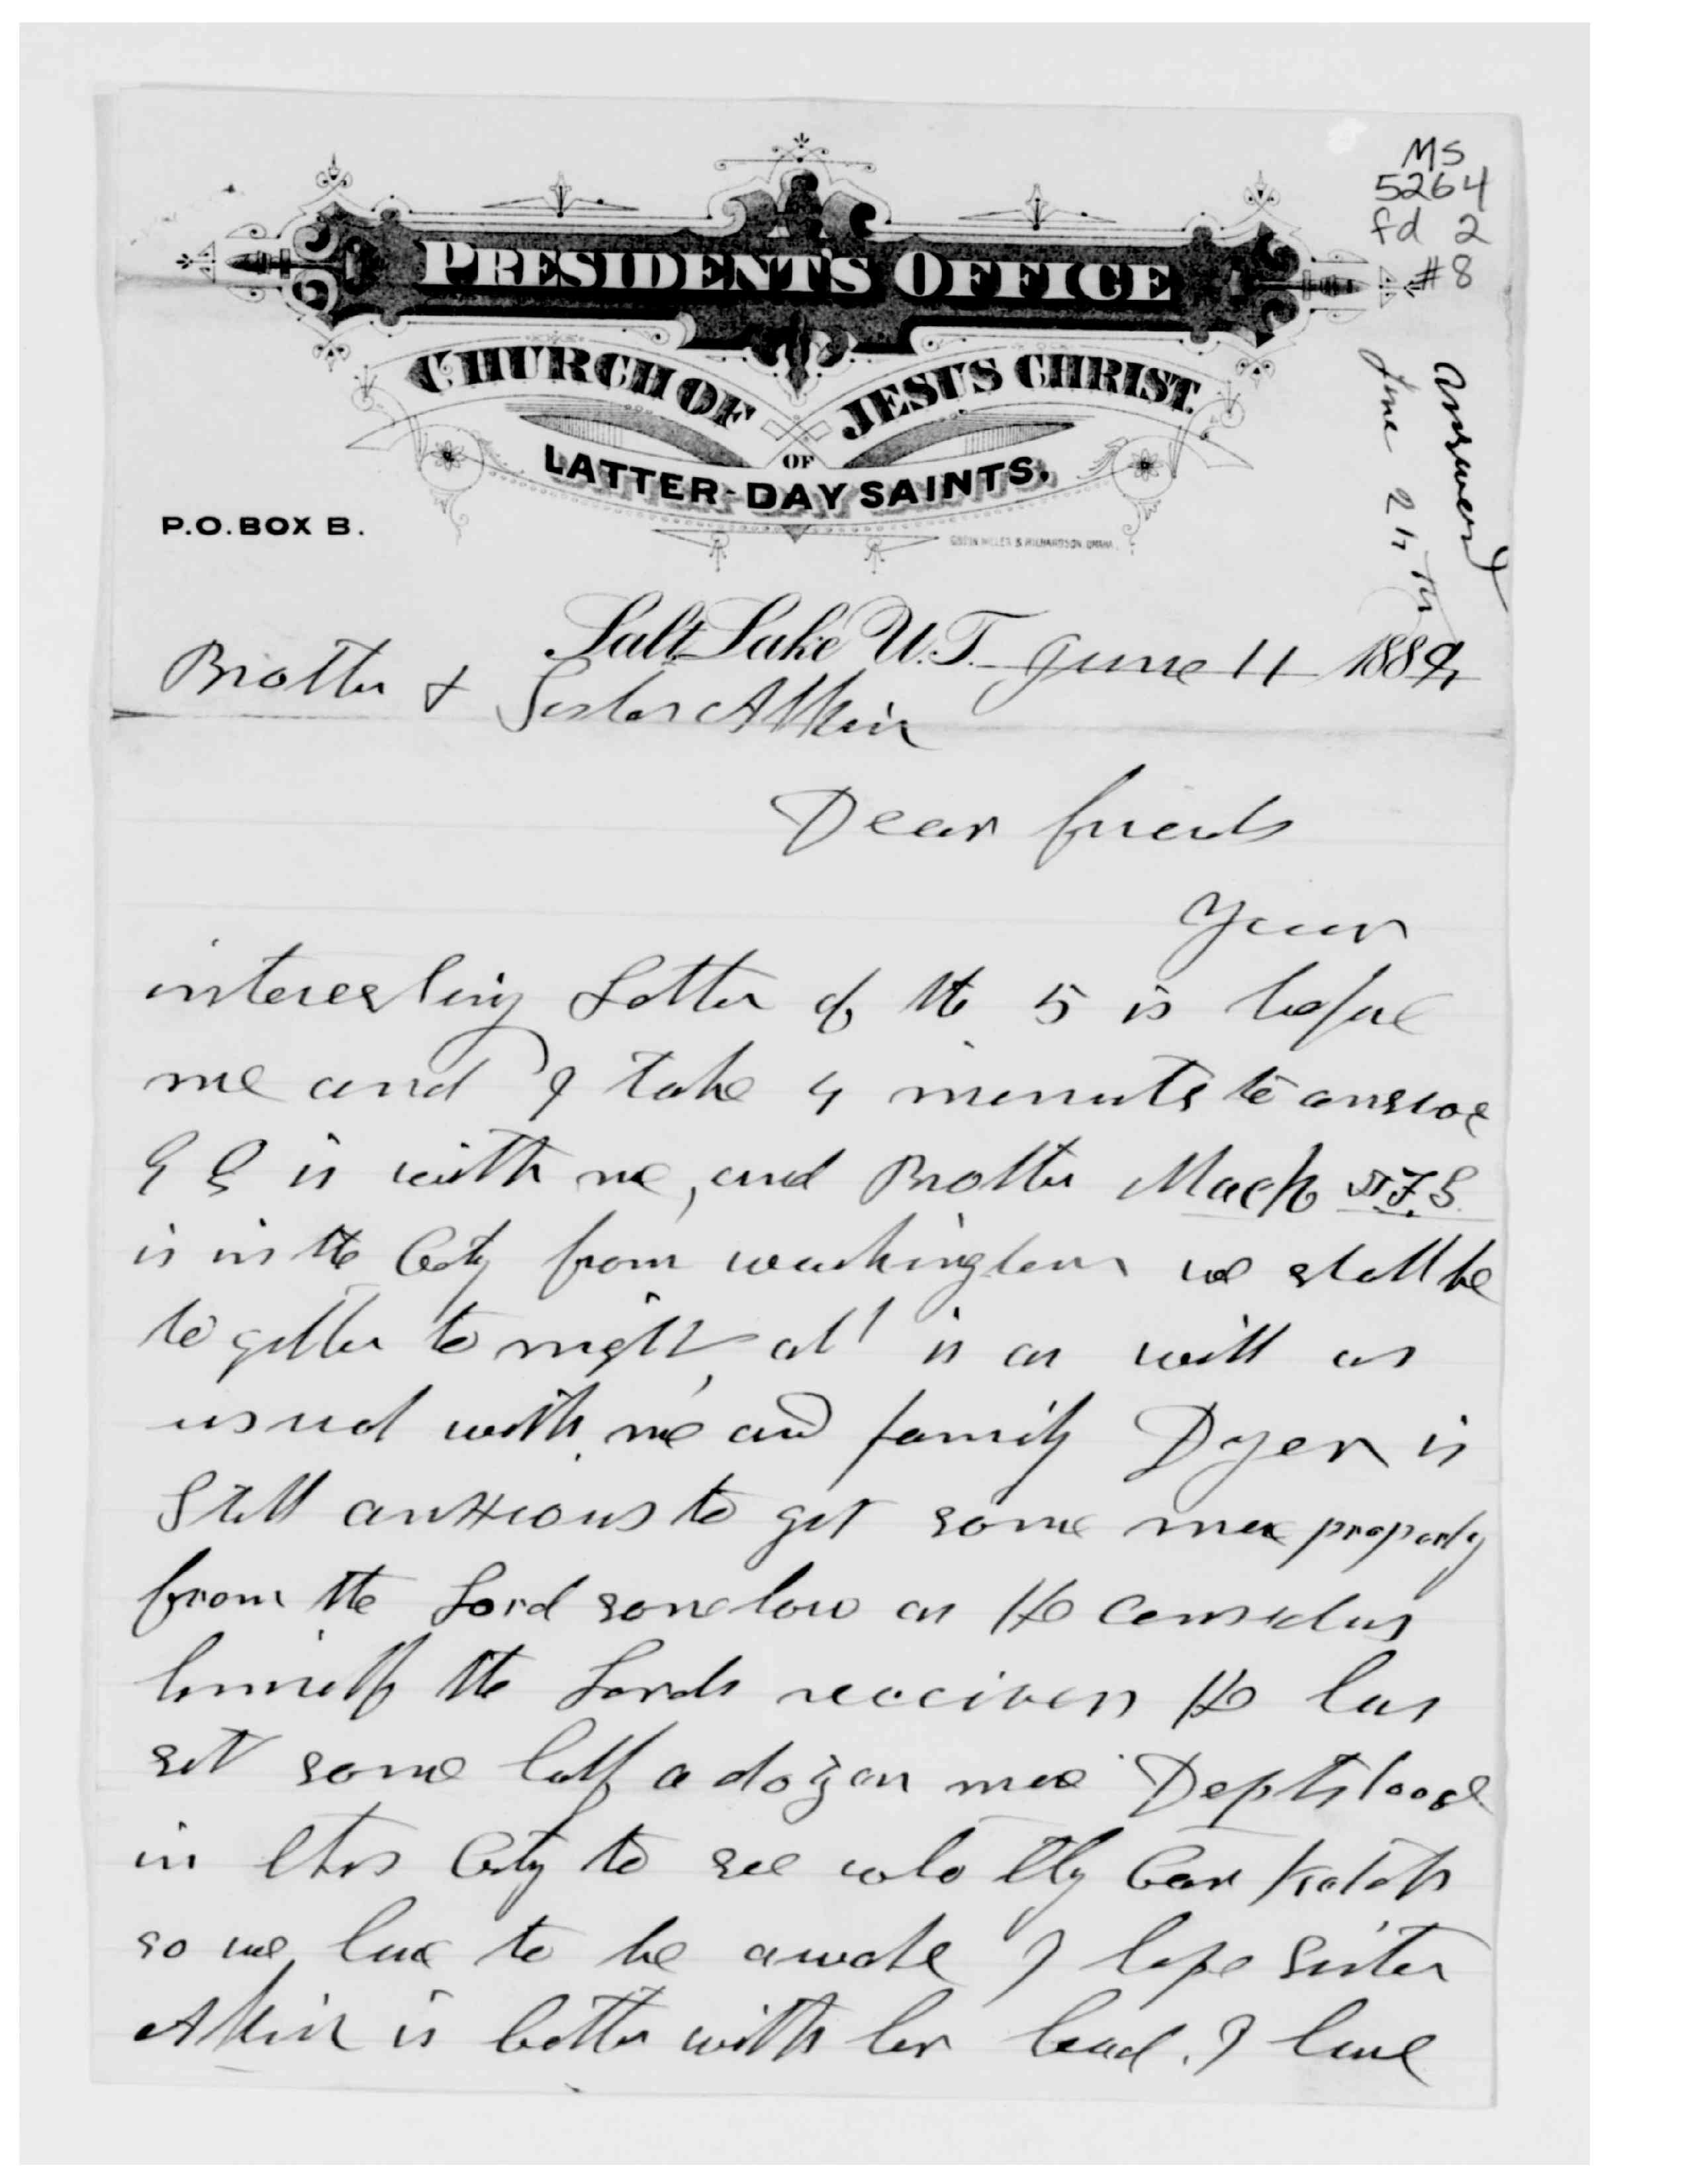 MS
5264
fd 2
#8
PRESIDENT'S OFFICE
CHURCH OF JESUS CHRIST
OF
LATTER-DAY SAINTS.
P.O. BOX B.
Answered
June
Salt Lake U.T. June 11 188
Brother & Sister Atkin
Dear friends
Your
interesting Letter of the 5 is before
me and I take 4 minuts to answer
is with me, and Brother Mack J.F.S.
is in the City from washington we shall be
to gether to night, all is as well as
usual with me and family Dyer is
Still anxious to get some more property
from the Lord somehow as He Considers
himself the Lords receiver He has
set some half a dozen more Depts loose
in this City to see who they Can Katch
so we have to be awake I hope Sister
Atkin is better with her head. I have